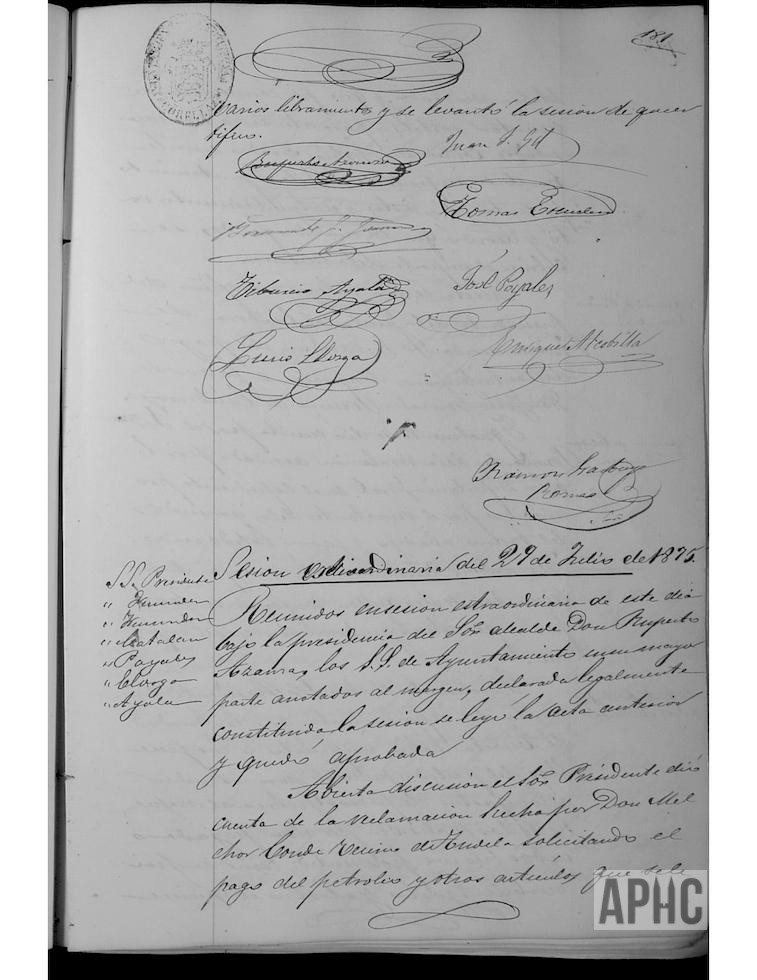 181
varios libramientos y se levantó la sesion de que cer
tifico.
Juan P. Gil
Ruperto Azanza
Tomas Escudero
Tiburcio Ayala
José Poyales
Lucio Llorza
Enrique Alcobilla
Ramon
Sesion estraordinaria del 29 de Julio de 1875.
SS. Presidente
" Catalan
" Poyales
" Ayala
Reunidos en sesion estraordinaria de este dia
bajo la presidencia del Sor. alcalde Don Ruperto
Azanza, los S.S. de Ayuntamiento en su mayor
parte anotados al margen, declarada legalmente
constituida la sesion se leyó la acta anterior
y quedó aprobada
Abierta discusion el Sor. Presidente dió
cuenta de la reclamacion hecha por Don Mel
chor Conde vecino de Tudela solicitando el
pago del petrolio y otros articulos que se le
APHC